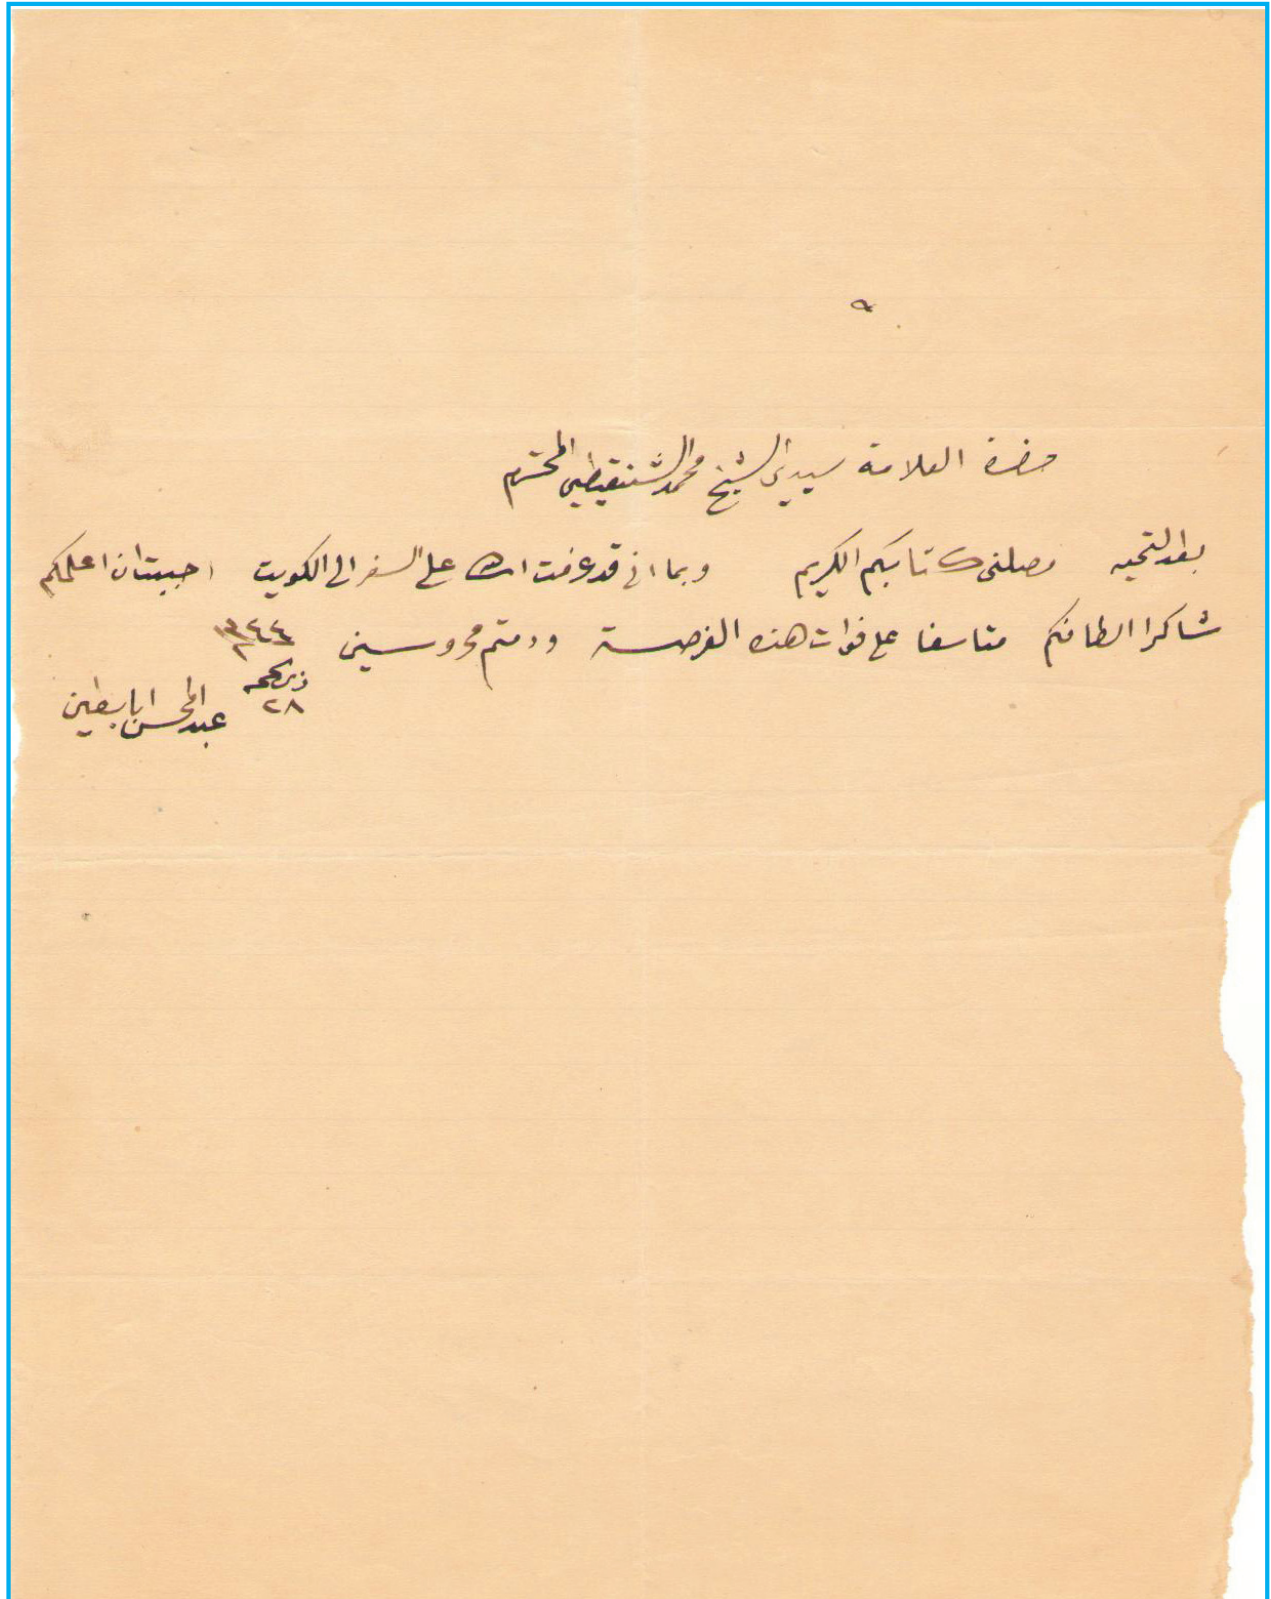 حضرة العلامة سيدي الشيخ محمد الشنقيطي المحترم
بعد التحيه وصلني كتابكم الكريم وبما اني قد عزمت على السفر الى الكويت احببت ان اعلمكم
شاكرا الطافكم متاسفا على فوات هذه الفرصة ودمتم محروسين ١٣٤٤
ذي الحجه
٢٨
عبد المحسن ابابطين